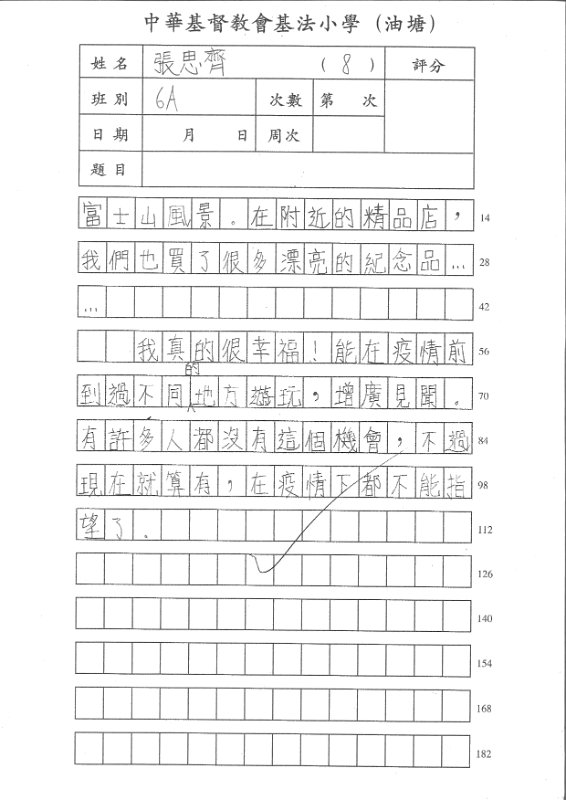 中華基督教會基法小學（油塘）
姓名 張思齊 （8） 評分
班別 6A 次數 第 次
日期 月 日 周次
題目
富士山風景。在附近的精品店， 14
我們也買了很多漂亮的紀念品… 28
… 42
我真的很幸福！能在疫情前 56
的
到過不同地方遊玩，增廣見聞。 70
有許多人都沒有這個機會，不過 84
現在就算有，在疫情下都不能指 98
望了。 112
126
140
154
168
182